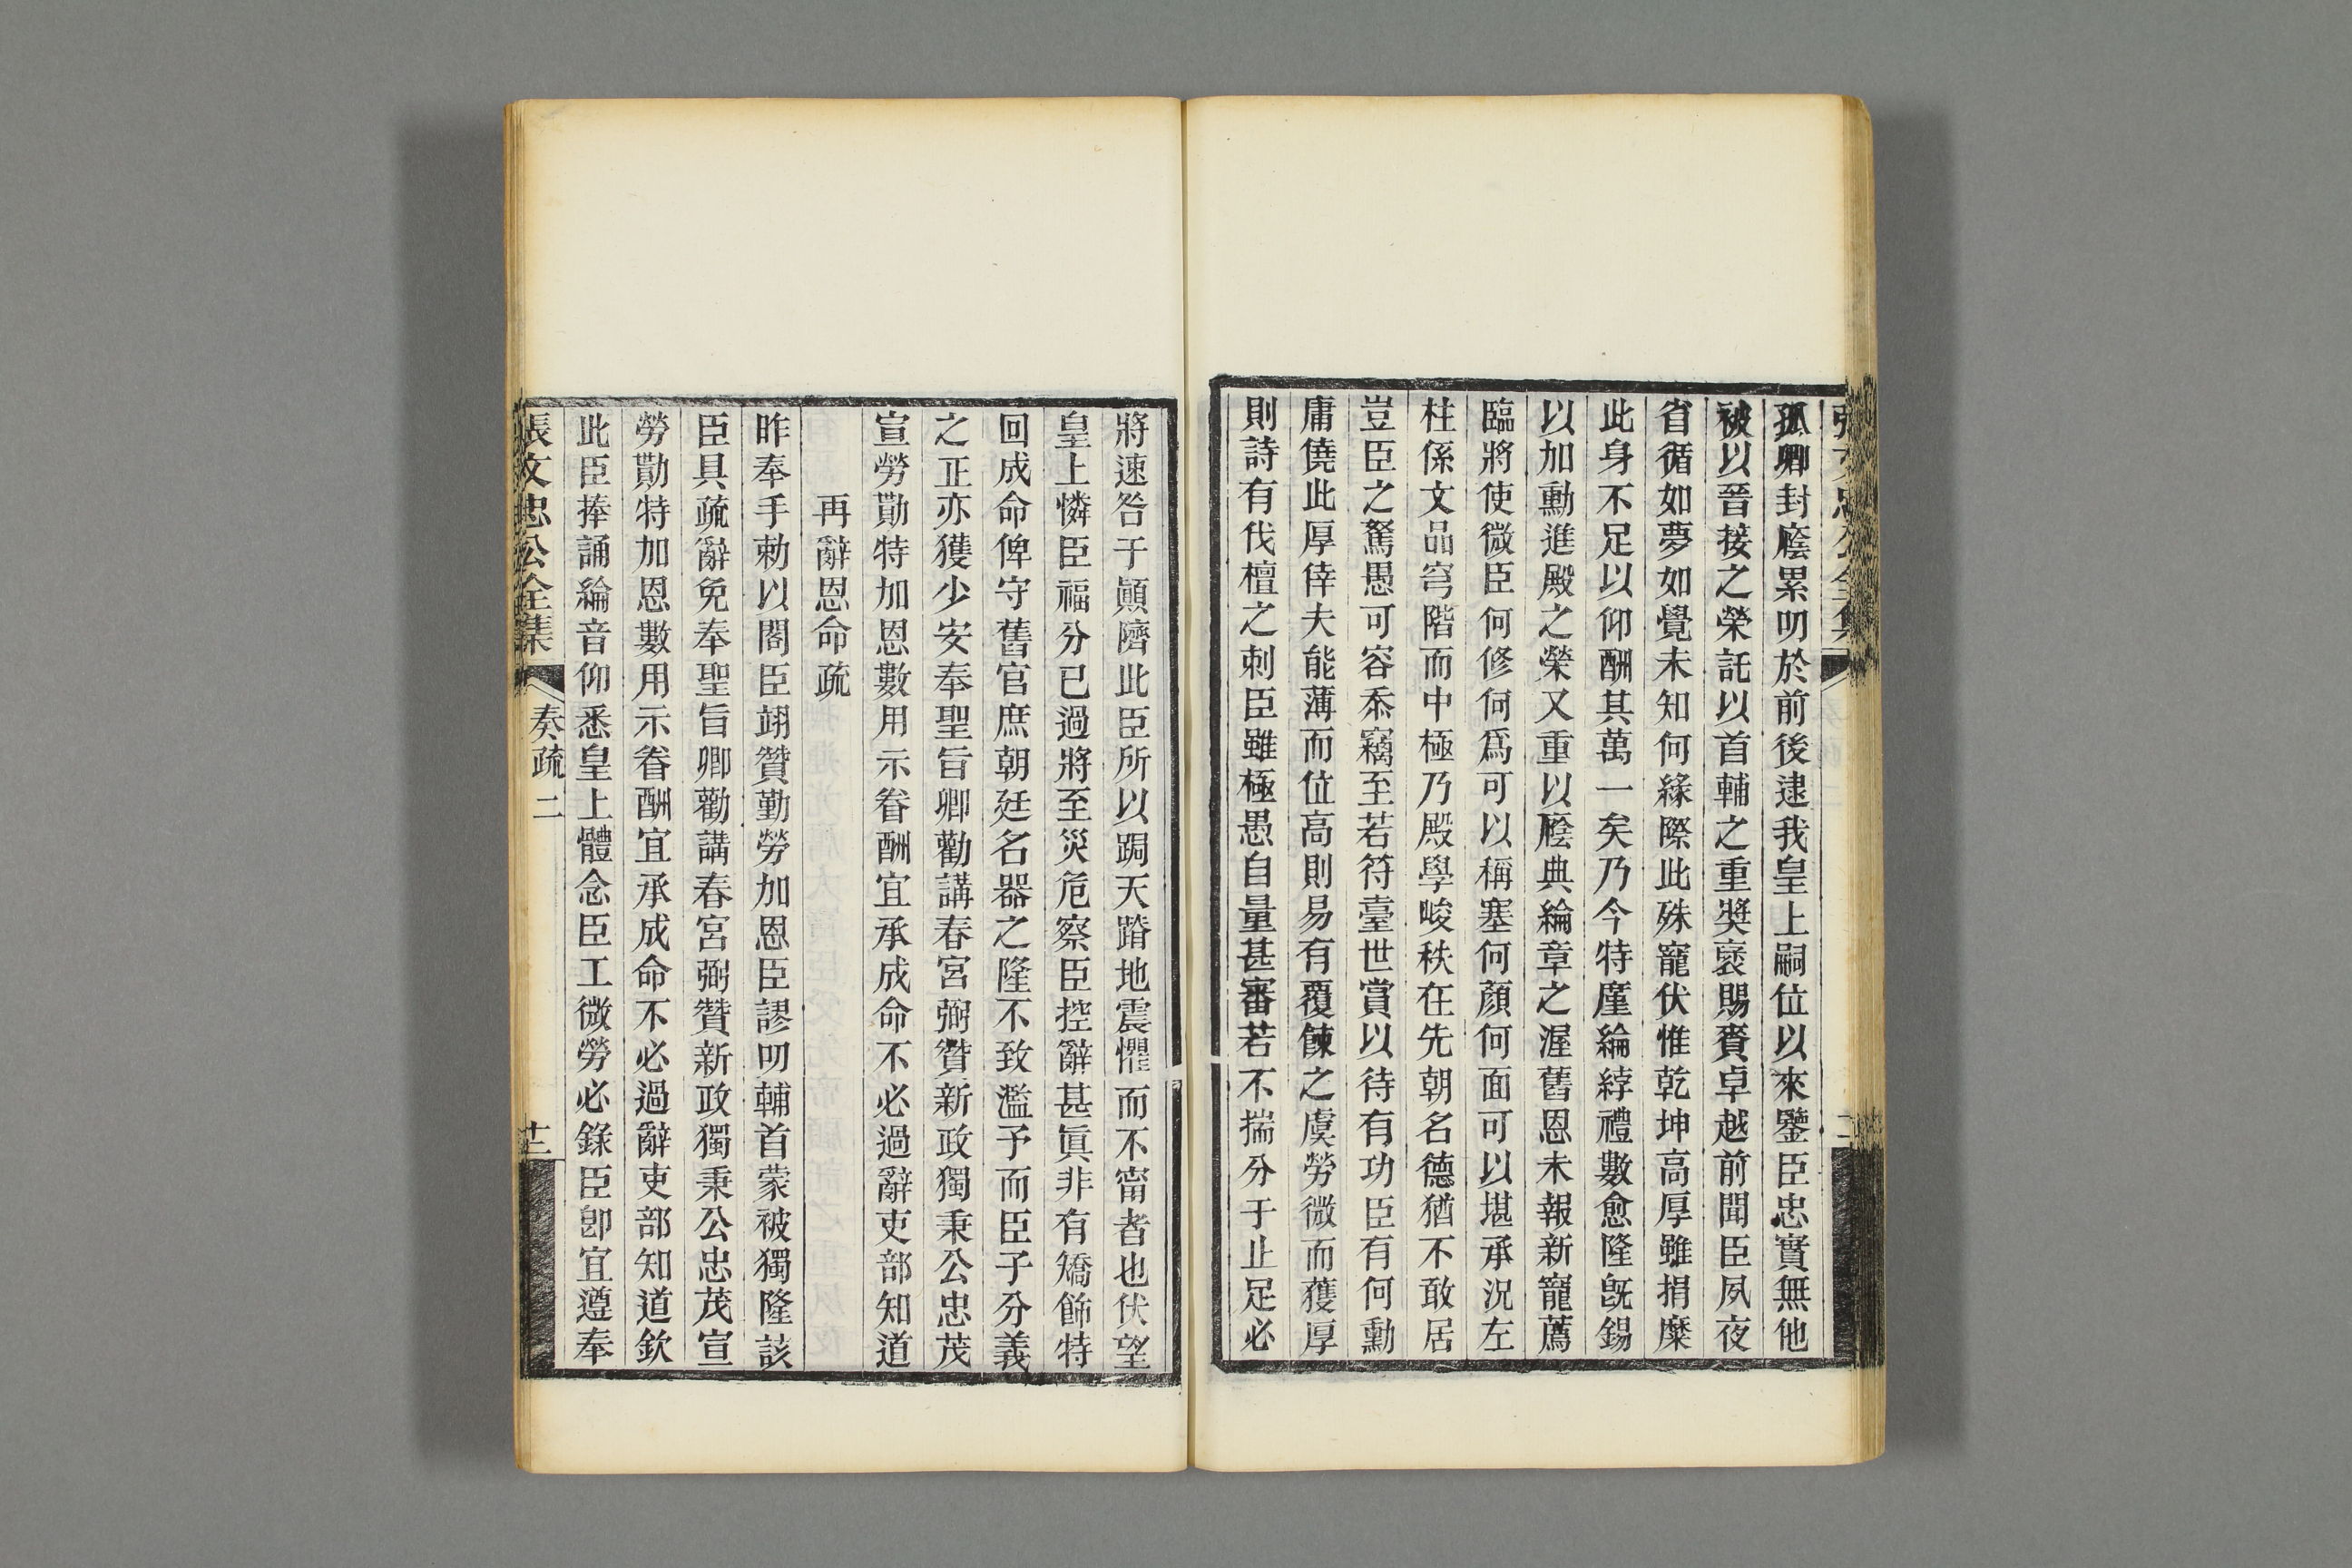 孤卿封廕累叨於前後逮我皇上嗣位以來鑒臣忠實無他
被以晉接之榮託以首輔之重奬襃賜賚卓越前聞臣夙夜
省循如夢如覺未知何緣際此殊寵伏惟乾坤高厚雖捐糜
此身不足以仰酬其萬一矣乃今特廑綸綍禮數愈隆旣錫
以加勳進殿之榮又重以廕典綸章之渥舊恩未報新寵薦
臨將使微臣何修何爲可以稱塞何顏何面可以堪承況左
柱係文品穹階而中極乃殿學峻秩在先朝名德猶不敢居
豈臣之駑愚可容忝竊至若符臺世賞以待有功臣有何勳
庸僥此厚倖夫能薄而位高則易有覆餗之虞勞微而獲厚
則詩有伐檀之刺臣雖極愚自量甚審若不揣分于止足必
將速咎于顚隮此臣所以跼天蹐地震懼而不甯者也伏望
皇上憐臣福分已過將至災危察臣控辭甚眞非有矯飾特
回成命俾守舊官庶朝廷名器之隆不致濫予而臣子分義
之正亦獲少安奉聖旨卿勸講春宮弼贊新政獨秉公忠茂
宣勞勩特加恩數用示眷酬宜承成命不必過辭吏部知道
再辭恩命疏
昨奉手勅以閣臣翊贊勤勞加恩臣謬叨輔首蒙被獨隆該
臣具疏辭免奉聖旨卿勸講春宮弼贊新政獨秉公忠茂宣
勞勩特加恩數用示眷酬宜承成命不必過辭吏部知道欽
此臣捧誦綸音仰悉皇上體念臣工微勞必錄臣卽宜遵奉
張文忠公全集
奏疏二
十二